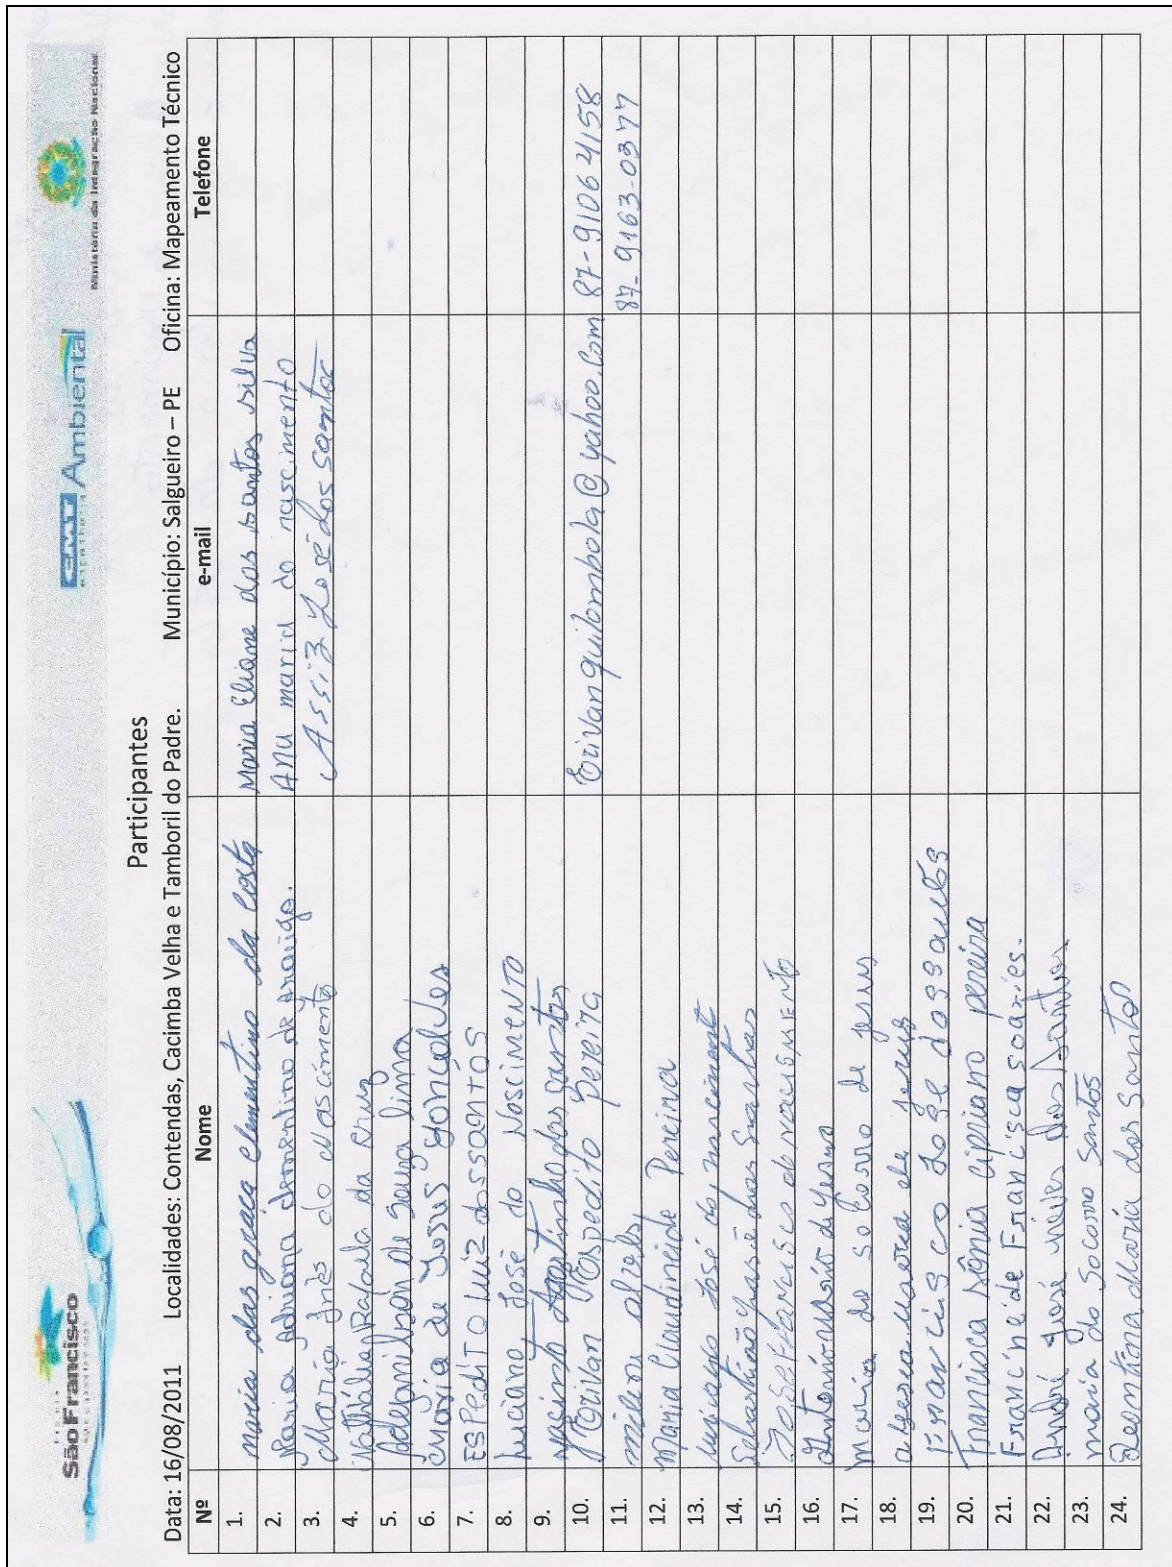 São Francisco
CMT Ambiental
engenharia
Ministério da Integração Nacional
Participantes
Data: 16/08/2011 Localidades: Contendas, Cacimba Velha e Tamboril do Padre. Município: Salgueiro – PE Oficina: Mapeamento Técnico
Nº Nome e-mail Telefone
1. maria das graça clementino da costa Maria Eliane dos santos silva
2. Maria Adriana clementino de Araújo. ANA maria do nascimento
3. Maria Inês do Nascimento Assiz José dos santos
4. Nathália Rafaela da cruz
5. Adegenilson de Souza lima
6. de Jesus gonçalves
7. ESPEdiTO LUIZ dos SANTOS
8. Luciano José do NasciMENTO
9. Agostinho dos santos
10. Erivan Espedito Pereira Erivanquilombola@yahoo.com 87-9106 4158
11. milton 87-9163-0377
12. Maria Claudineide Pereira
13. José do nascimento
14. Sebastião José dos Santos
15. José Francisco do nascimento
16. Antonio de Jesus
17. Maria do Socorro de jesus
18. maria de jesus
19. Francisco José dos santos
20. Francisca Sônia cipriano pereira
21. Francineide Francisca soares.
22. André José dos Santos
23. maria do Socorro Santos
24. Maria dos Santos